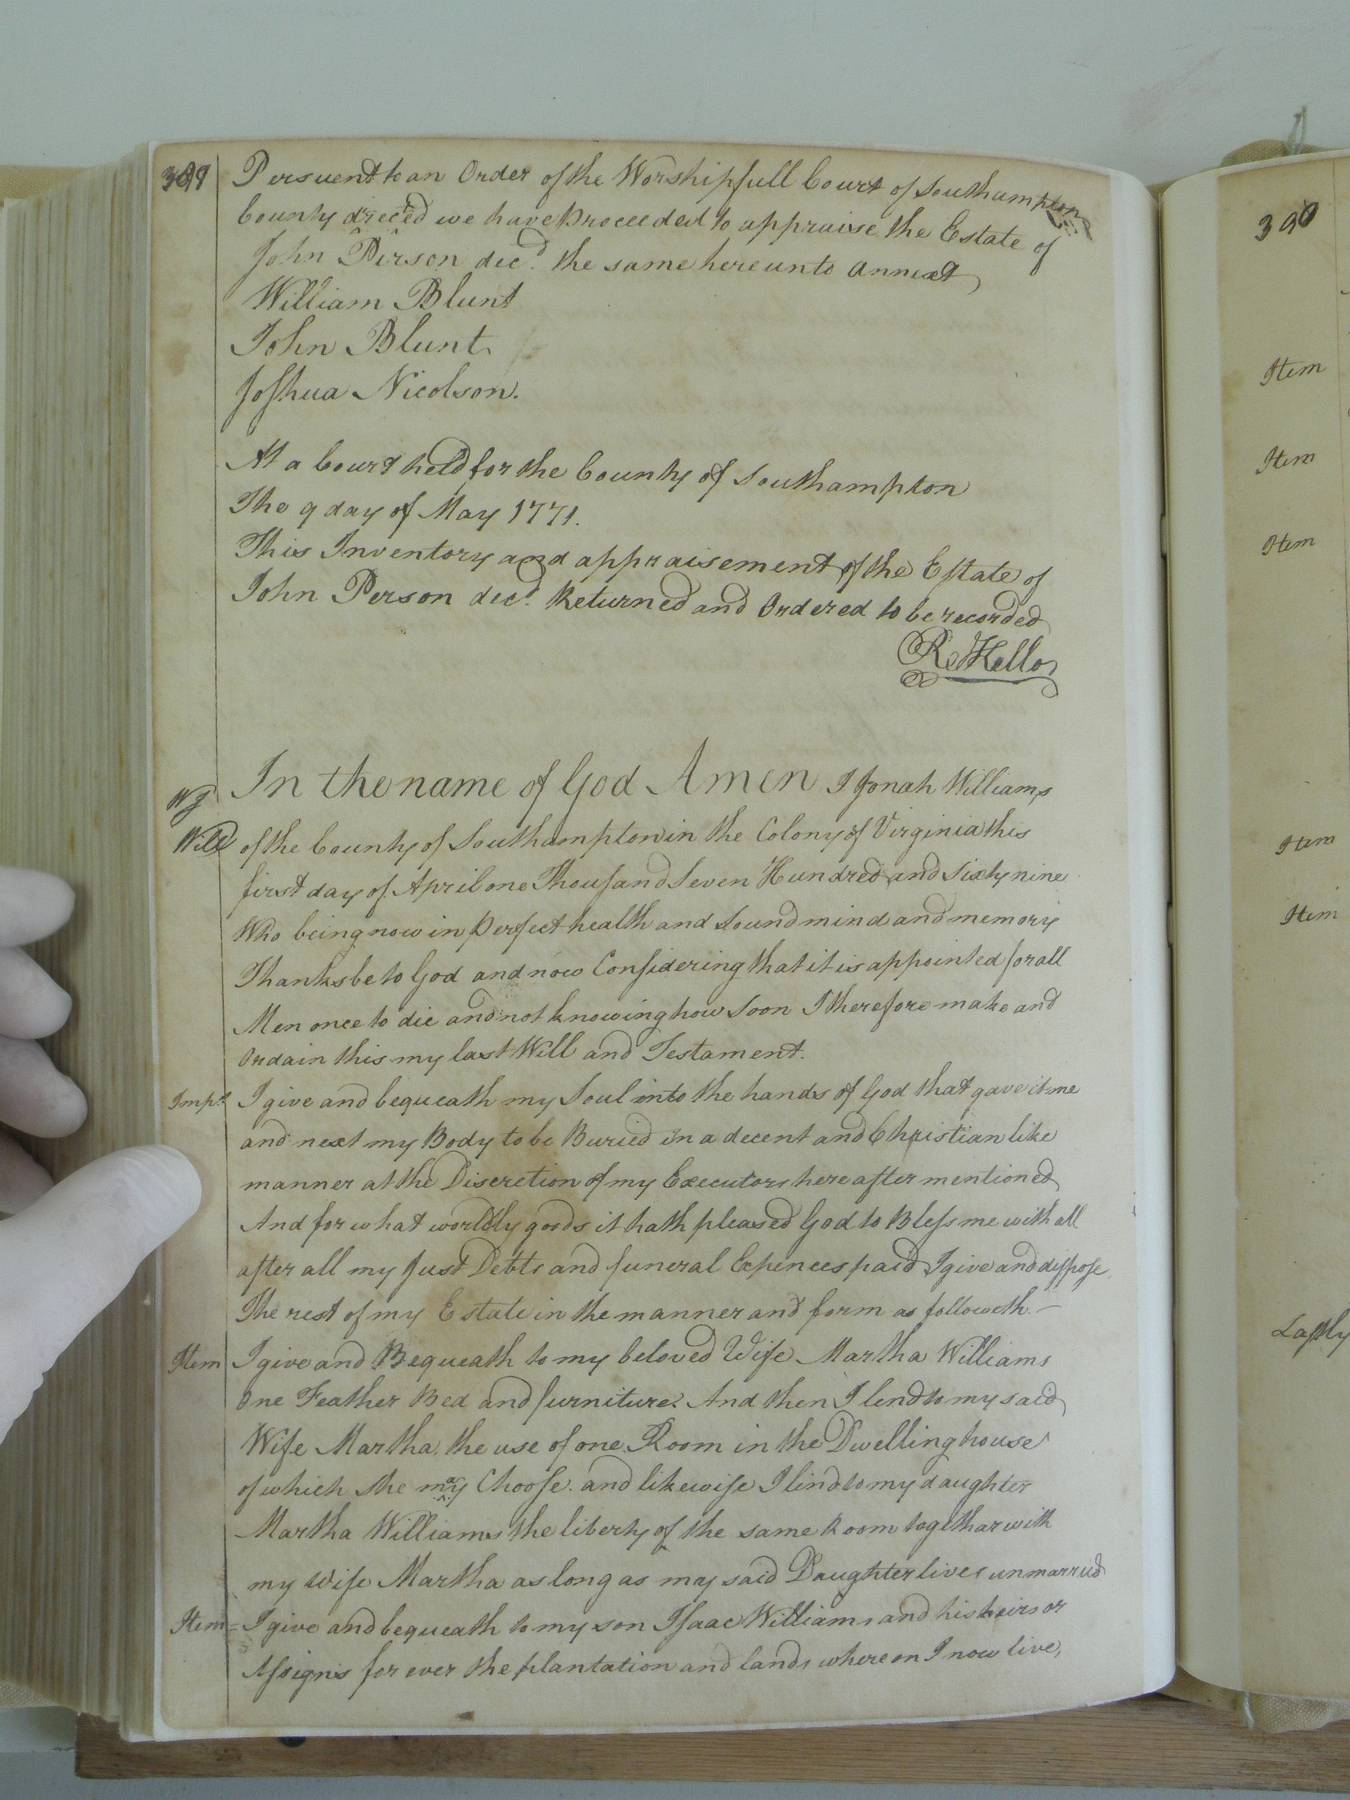 389
Persuent to an Order of the Worshipfull Court of Southampton
County direced we have Proceeded to appraise the Estate of
John Person decd. the same hereunto annext
William Blunt
John Blunt
Joshua Nicolson.
At a Court held for the County of Southampton
The 9 day of May 1771.
This Inventory and appraisement of the Estate of
John Person decd. Returned and Ordered to be recorded
Rd Kello
In the name of God Amen I Jonah Williams
Will of the County of Southampton in the Colony of Virginia this
first day of April one Thousand Seven Hundred and Sixty nine
Who being now in Perfect health and Sound mind and memory
Thanks be to God and now Considering that it is appointed for all
Men once to die and not knowing how Soon I therefore make and
Ordain this my last Will and Testament.
Imps. I give and bequeath my Soul into the hands of God that gave it me
and next my Body to be Buried in a decent and Christian like
manner at the Discretion of my Executors hereafter mentioned
And for what worldly goods it hath pleased God to Bless me with all
after all my Just Debts and funeral Expences paid I give and dispose
The rest of my Estate in the manner and form as followeth.—
Item I give and Bequeath to my beloved Wife Martha Williams
One Feather Bed and furniture. And then I lend to my said
Wife Martha, the use of one Room in the Dwelling house
of which She may Choose. and likewise I lind to my daughter
Martha Williams the liberty of the same Room togethar with
my Wife Martha as long as may said Daughter lives unmarried
Item= I give and bequeath to my son Isaac Williams and his heirs or
Assigns for ever the plantation and lands whereon I now live,
390
Item
Item
Item
Item
Item
Lastly